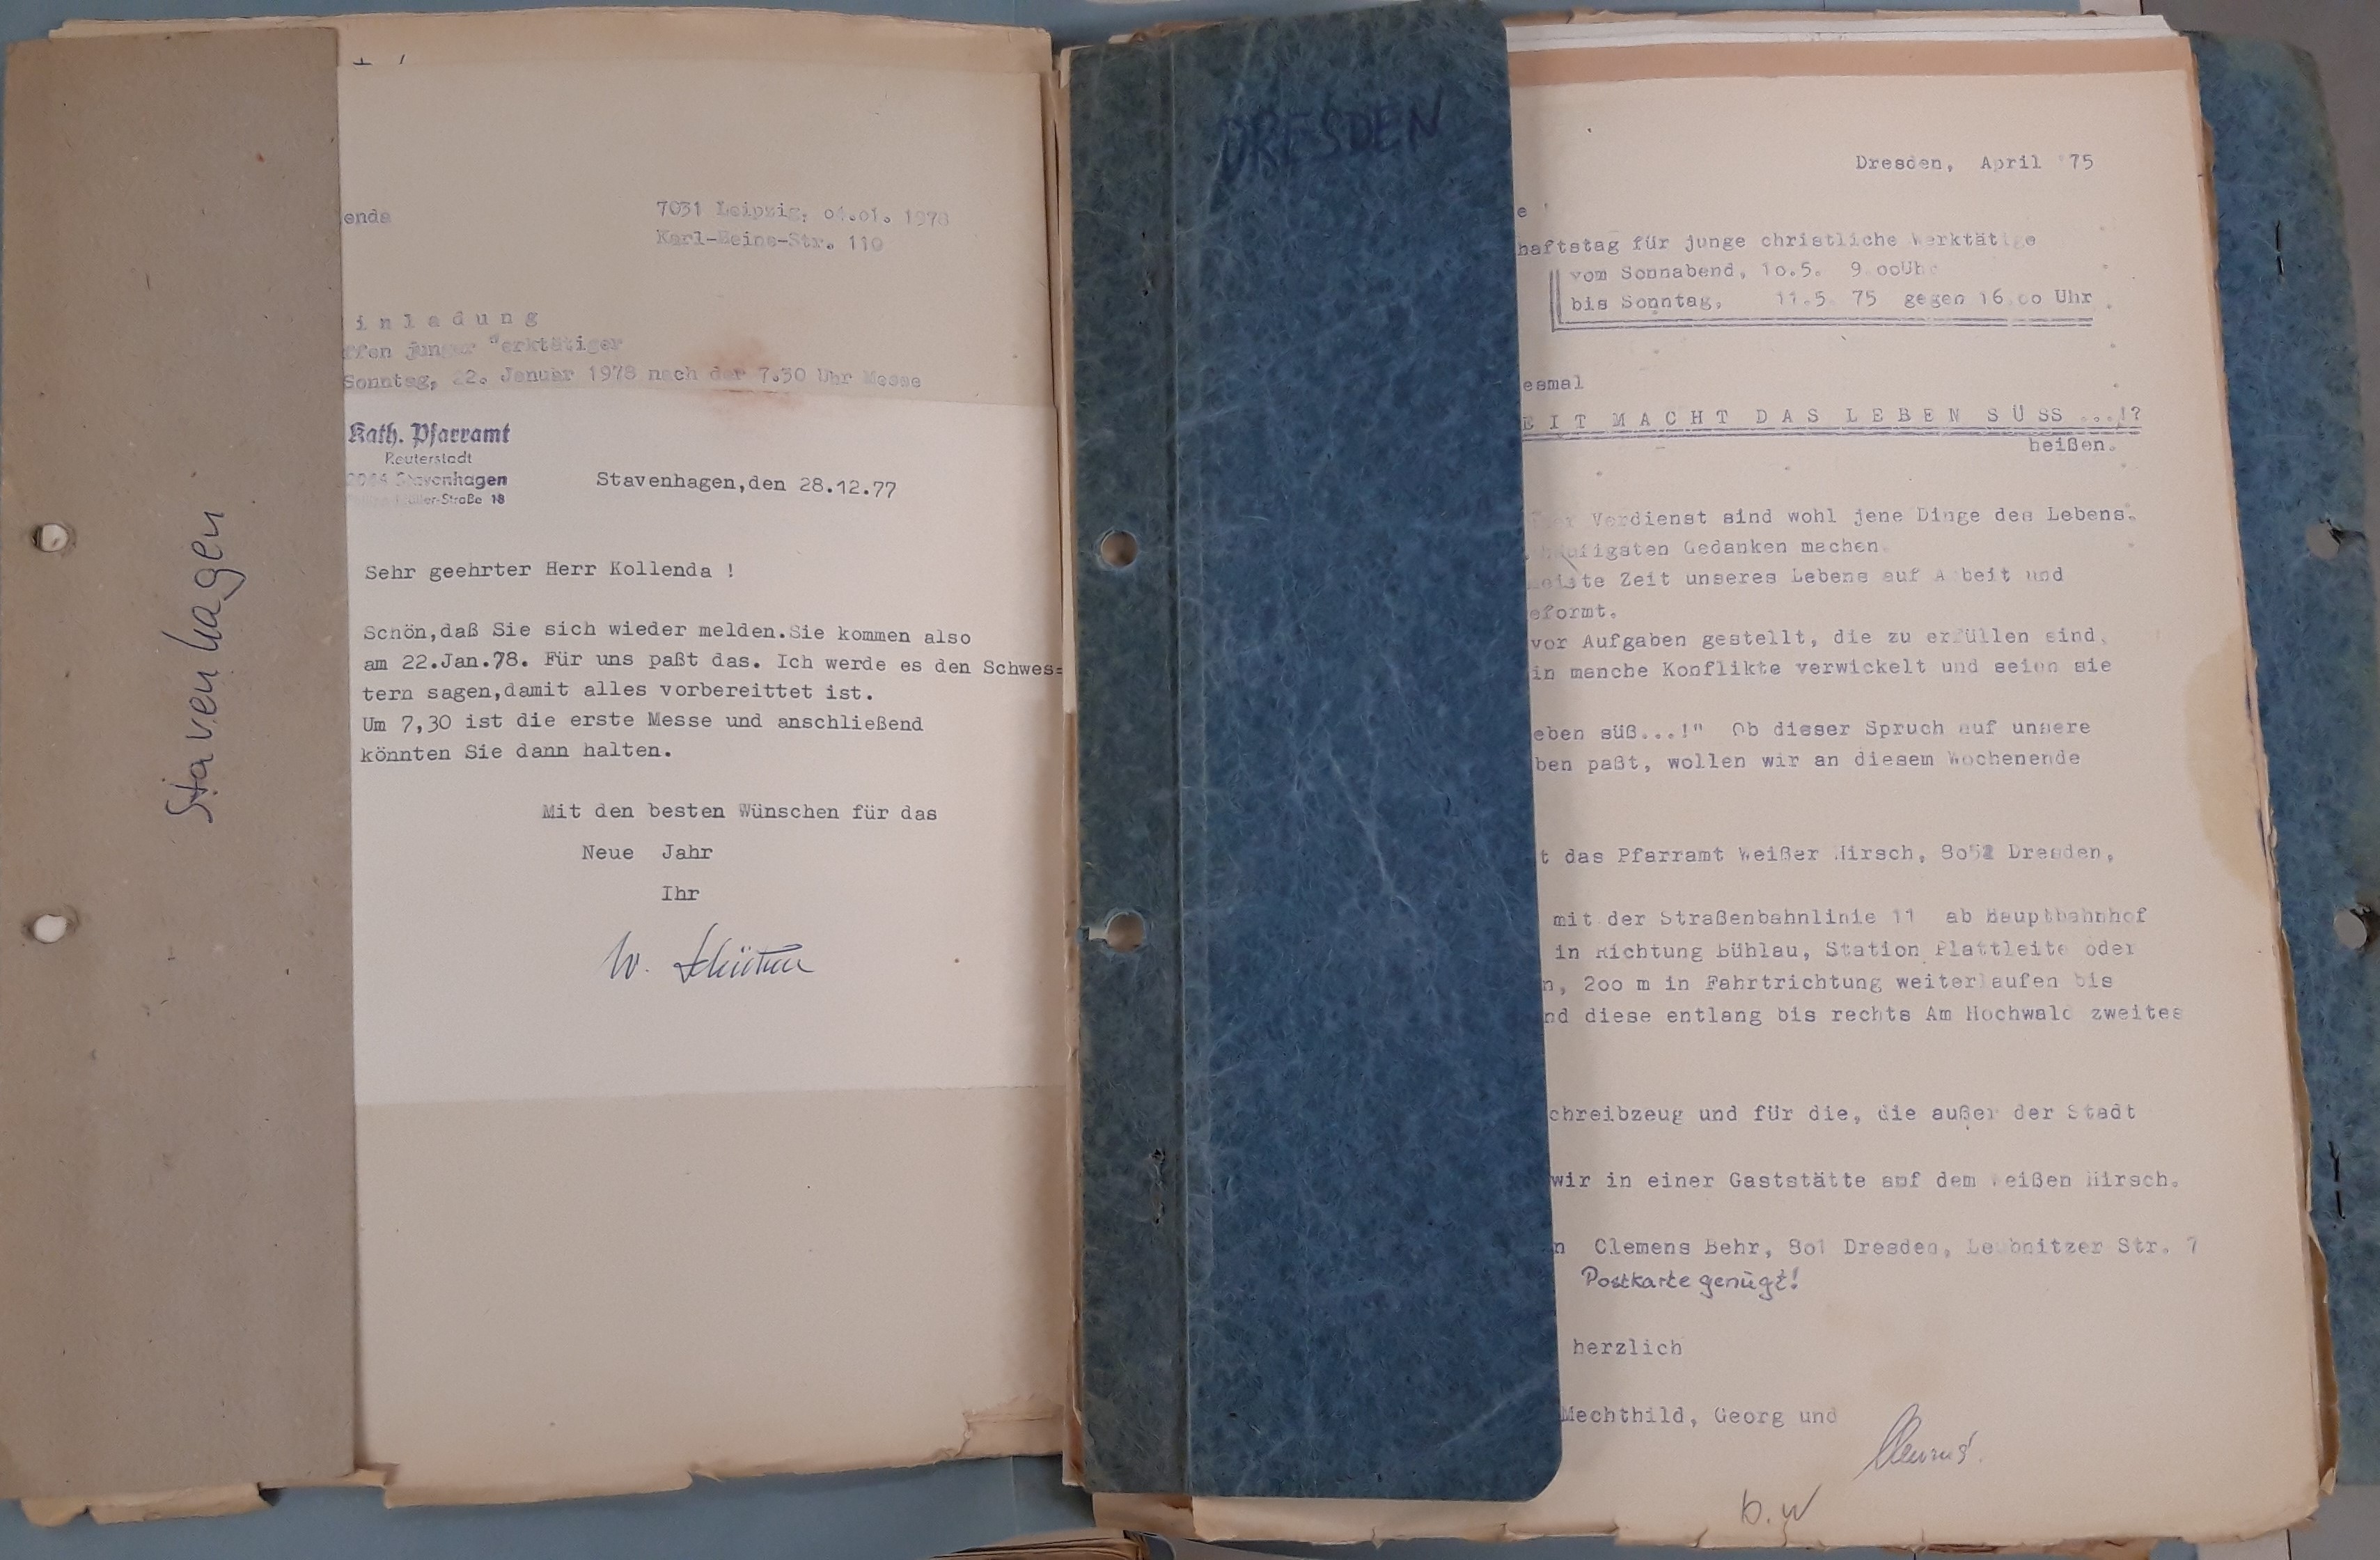 Stavenhagen
enda
7031 Leipzig, 04.01. 1978
Karl-Heine-Str. 110
inladung
ffen junger Werktätiger
Sonntag, 22. Januar 1978 nach der 7.30 Uhr Messe
Kath. Pfarramt
Reuterstadt
Stavenhagen
-Straße 18
Stavenhagen,den 28.12.77
Sehr geehrter Herr Kollenda !
Schön,daß Sie sich wieder melden.Sie kommen also
am 22.Jan.78. Für uns paßt das. Ich werde es den Schwes=
tern sagen,damit alles vorbereittet ist.
Um 7,30 ist die erste Messe und anschließend
könnten Sie dann halten.
Mit den besten Wünschen für das
Neue Jahr
Ihr
W.
DRESDEN
Dresden, April '75
e !
haftstag für junge christliche Werktätige
vom Sonnabend, 10.5. 9.ooUhr
bis Sonntag, 11.5. 75 gegen 16.oo Uhr
esmal
EIT MACHT DAS LEBEN SÜSS ...!?
heißen.
Verdienst sind wohl jene Dinge des Lebens.
häufigsten Gedanken machen.
eiste Zeit unseres Lebens auf Arbeit und
eformt.
vor Aufgaben gestellt, die zu erfüllen sind.
in manche Konflikte verwickelt und seien sie
eben süß...!" Ob dieser Spruch auf unsere
ben paßt, wollen wir an diesem Wochenende
t das Pfarramt Weißer Hirsch, 8052 Dresden,
mit der Straßenbahnlinie 11 ab Hauptbahnhof
in Richtung Bühlau, Station Plattleite oder
n, 2oo m in Fahrtrichtung weiterlaufen bis
nd diese entlang bis rechts Am Hochwald zweites
chreibzeug und für die, die außer der Stadt
wir in einer Gaststätte auf dem Weißen Hirsch.
n Clemens Behr, 8o1 Dresden, Leubnitzer Str. 7
Postkarte genügt!
herzlich
Mechthild, Georg und
Clemens.
b.w